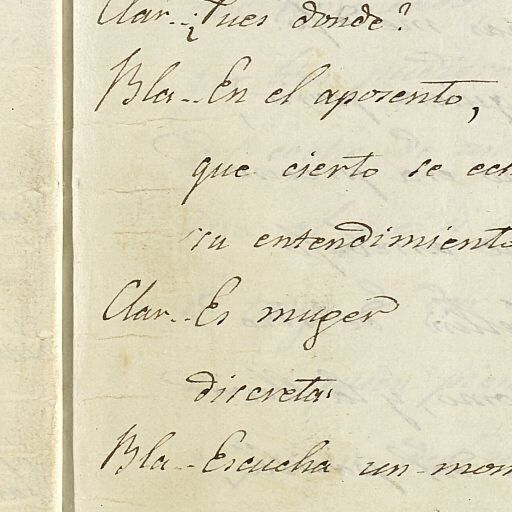 Clar..¿Pues donde?
Bla-..En el aposento,
que cierto se ech
su entendimiento
Clar..Es muger
discreta.
Bla-..Escucha un mom